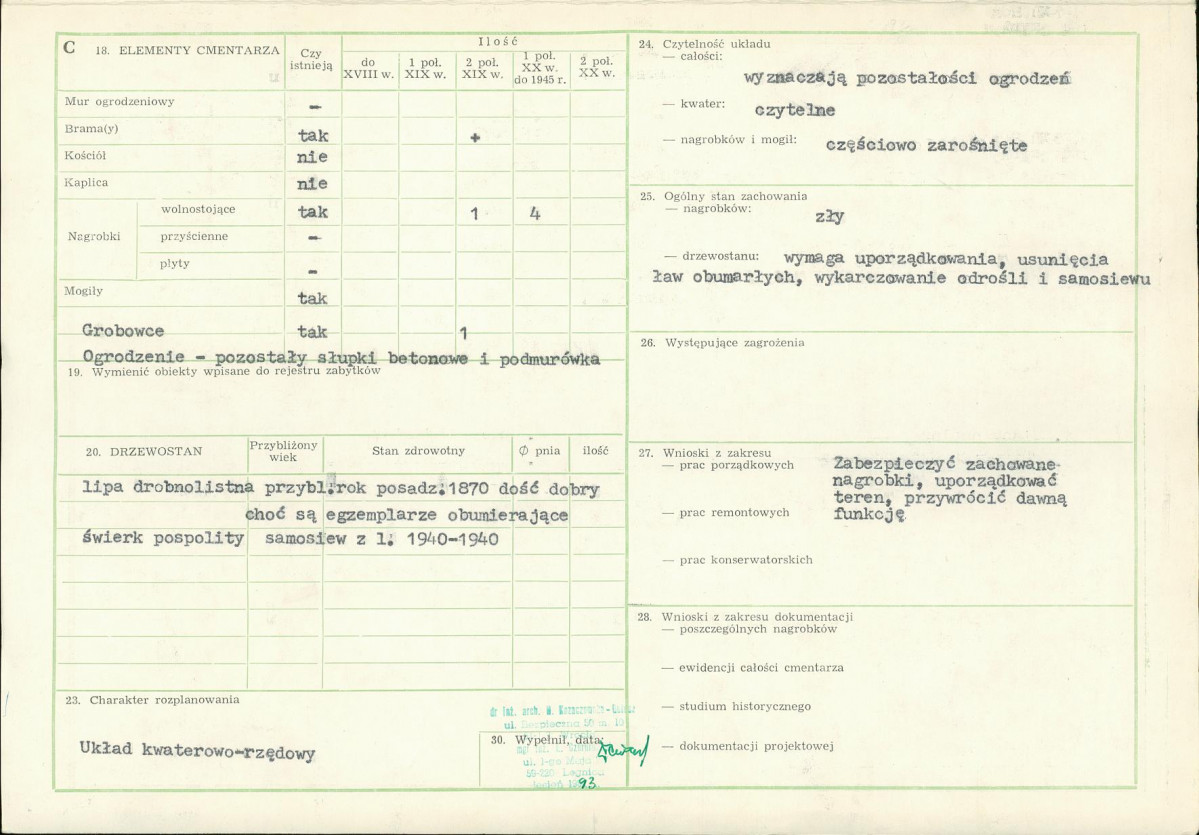 C 18. ELEMENTY CMENTARZA
Czy istnieją
Ilość
do XVIII w.
1 poł. XIX w.
2 poł. XIX w.
1 poł. XX w. do 1945 r.
2 poł. XX w.
Mur ogrodzeniowy –
Brama(y) tak +
Kościół nie
Kaplica nie
Nagrobki
wolnostojące tak 1 4
przyścienne –
płyty –
Mogiły tak
Grobowce tak 1
Ogrodzenie – pozostały słupki betonowe i podmurówka
19. Wymienić obiekty wpisane do rejestru zabytków
20. DRZEWOSTAN
Przybliżony wiek
Stan zdrowotny
Ø pnia
ilość
lipa drobnolistna przybl.rok posadz.1870 dość dobry
choć są egzemplarze obumierające
świerk pospolity samosiew z l. 1940-1940
23. Charakter rozplanowania
Układ kwaterowo-rzędowy
dr inż. arch.
ul. Bezpieczna 50 m. 10
30. Wypełnił, data:
mgr inż.
ul. 1-go Maja
59-220 Legnica
93.
24. Czytelność układu
— całości:
wyznaczają pozostałości ogrodzeń
— kwater: czytelne
— nagrobków i mogił: częściowo zarośnięte
25. Ogólny stan zachowania
— nagrobków: zły
— drzewostanu: wymaga uporządkowania, usunięcia
ław obumarłych, wykarczowanie odrośli i samosiewu
26. Występujące zagrożenia
27. Wnioski z zakresu
— prac porządkowych
Zabezpieczyć zachowane
nagrobki, uporządkować
teren, przywrócić dawną
funkcję
— prac remontowych
— prac konserwatorskich
28. Wnioski z zakresu dokumentacji
— poszczególnych nagrobków
— ewidencji całości cmentarza
— studium historycznego
— dokumentacji projektowej